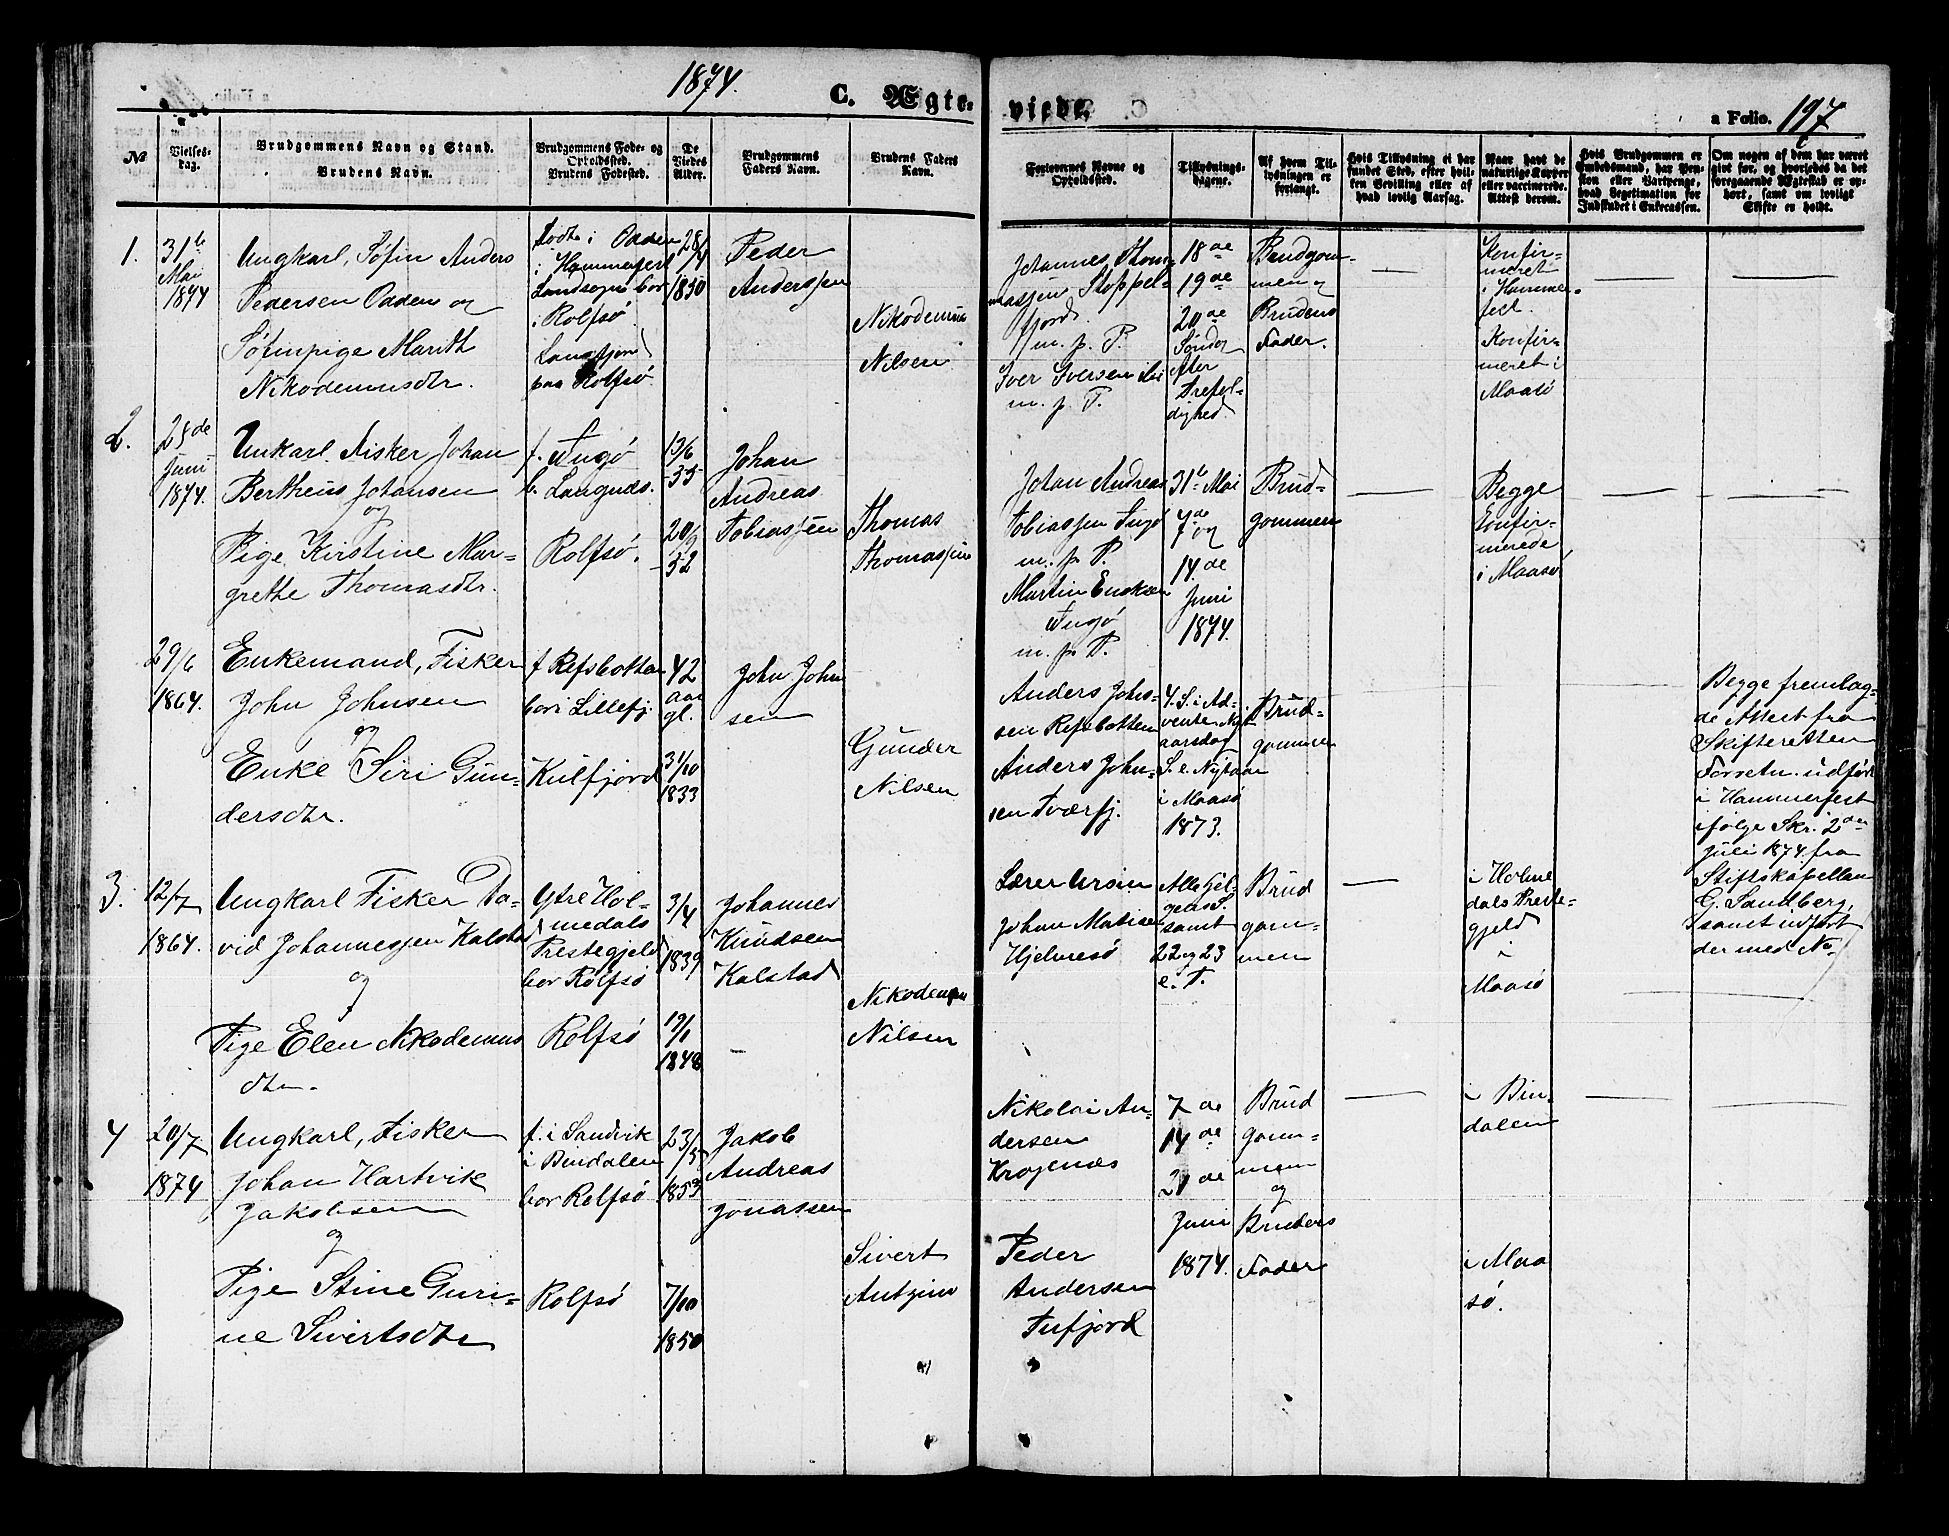 1874.
C. Ægte-
viede.
a Folio. 197
No
Vielses-
dag.
Brudgommens Navn og Stand.
Brudens Navn.
Brudgommens Føde- og
Opholdssted.
Brudens Fødested.
De
Viedes
Alder.
Brudgommens
Faders Navn.
Brudens Faders
Navn.
Forlovernes Navne og
Opholdssted.
Tillysnings-
dagene.
Af hvem Til-
lysningen er
forlangt.
Hvis Tillysning ei har
fundet Sted, efter hvil-
ken Bevilling eller af
hvad lovlig Aarsag.
Naar havt de
naturlige Kopper
eller vaccinerede.
Attest derom.
Hvis Brudgommen er
Embedsmand, har Pen-
sion eller Vartpenge,
hvad Legitimation for
Indskudet i Enkecassen.
Om nogen af dem har været
givt før, og hvorledes da det
foregaaende Ægteskab er op-
hørt, samt om lovligt
Skifte er holdt.
1.
31te
Mai
1874
Ungkarl, Søfin Anders
Pedersen Odden og
Søfinpige Marith
Nikodemusdtr.
Født i Odden
i Hammerfest
Landsogn bor
i Rolfsø
Langfjord
paa Rolfsø
28/4
1850
Peder
Anderssen
Nikodemus
Nilsen
Johannes Thom-
assen Stoppel-
fjord
m. p. P.
Iver Iversen
m. p. P.
18de
19de
20de
Søndag
efter
Trefol-
dighed
Brudgom-
men og
Brudens
Fader.
Konfir-
meret
i Hammer-
fest.
Konfir-
meret i
Maasø
2.
28de
Juni
1874.
Unkarl. Fisker Johan
Bertheus Johansen
og
Pige Kirstine Mar-
grethe Thomasdtr.
f. Ingø
b. Langnæs.
Rolfsø.
13/6
-35
20/9
-52
Johan
Andreas
Tobiassen
Thomas
Thomassen
Johan Andreas
Tobiassen Ingø
m. p. P.
Martin Enoksen
Ingø
m. p. P.
31te Mai
7de og
14de
Juni
1874.
Brud-
gommen
Begge
konfir-
merede
i Maasø
29/6
1864.
Enkemand, Fisker
John Johnsen
og
Enke Siri Gun-
dersdtr.
f Refsbotten
bor i Lillefj.
Kulfjord
42
aar
gl.
31/10
1833
John John
sen
Gunder
Nilsen
Anders John-
sen Refsbotten
Anders John-
sen Tværfj.
4. S. i Ad-
vent Nyt-
aarsdag
S. e. Nytaar
i Maasø
1873.
Brud-
gommen
Begge fremlag-
de Attest fra
Skifteretten
Forretn. udført
i Hammerfest
ifølge Skr. 2den
Juli 1874 fra
Stiftskapellan
G. Sandberg,
samt udført
der med No
3.
12/7
1864.
Ungkarl Fisker Da-
vid Johannessen Kalstad
og
Pige Elen Nikodemus
dtr.
Ytre Hol-
medals
Prestegjeld
bor Rolfsø
Rolfsø
3/4
1839
19/1
1848
Johannes
Knudsen
Kalstad
Nikodemus
Nilsen
Lærer Ursin
Johan Matisen
Hjelmesø
Alle Hel-
gens S.
samt
22 og 23
e. T.
Brud
gom-
men
i Holme
dals Preste-
gjeld
i
Maasø
4
20/7
1874
Ungkarl, Fisker
Johan Hartvik
Jakobsen
og
Pige Stine Guri-
ne Sivertsdtr
f. i Sandvik
i Bindalen
bor Rolfsø
Rolfsø
23/5
1853
7/10
1850
Jakob
Andreas
Jonassen
Sivert
Nikolai An-
dersen
Krogenæs
Peder
Andersen
Tufjord
7de
14de
21de
Juni
1874.
Brud
gom-
men
og
Brudens
Fader
i Bin
dalen
i Maa
sø.